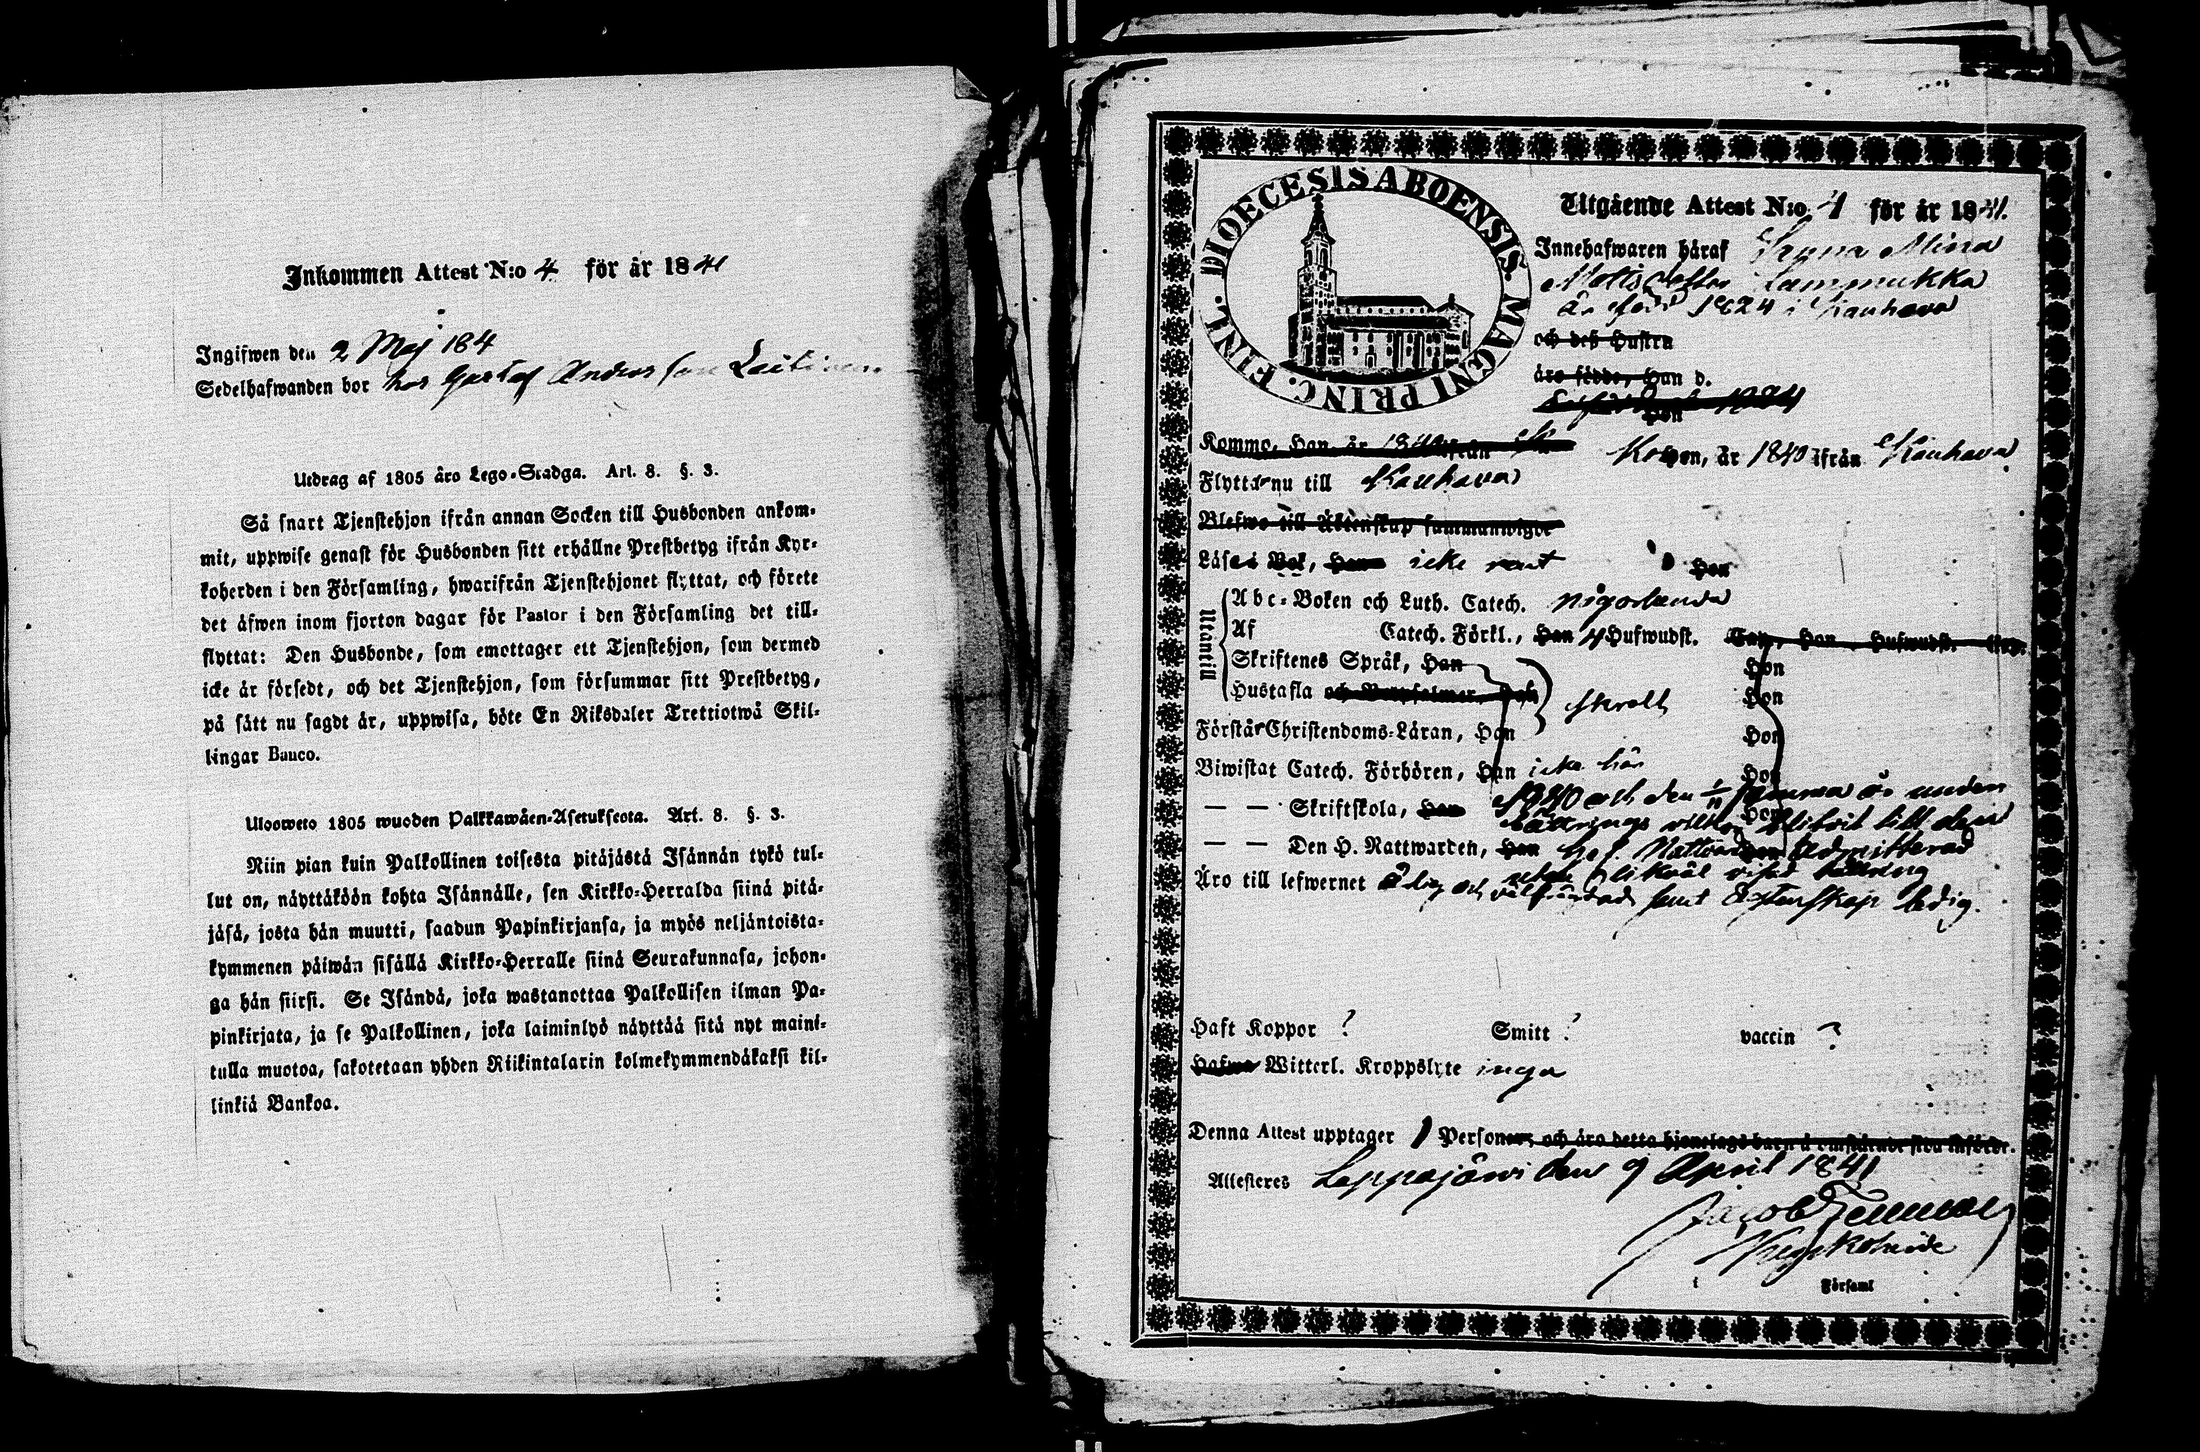 Inkommen Attest N:o 4 för år 1841
Ingifwen den 2 Maj 184
Sedelhafwanden bor hos Gustaf Andersson Leitinen
Utdrag af 1805 års Lego-Stadga. Art. 8. §. 3.
Så snart Tjenstehjon ifrån annan Socken till Husbonden ankom-
mit, uppwise genast för Husbonden sitt erhållne Prestbetyg ifrån Kyr-
koherden i den Församling, hwarifrån Tjenstehjonet flyttat, och förete
det äfwen inom fjorton dagar för Pastor i den Församling det till-
flyttat: Den Husbonde, som emottager ett Tjenstehjon, som dermed
icke är försedt, och det Tjenstehjon, som försummar sitt Prestbetyg,
på sätt nu sagdt är, uppwisa, böte En Riksdaler Trettiotwå Skil-
lingar Banco.
Ulosweto 1805 wuoden Palkkawäen-Asetuksesta. Art. 8. §. 3.
Niin pian kuin Palkollinen toisesta pitäjästä Isännän tykö tul-
lut on, näyttäköön kohta Isännälle, sen Kirkko-Herralda siinä pitä-
jäsä, josta hän muutti, saadun Papinkirjansa, ja myös neljäntoista-
kymmenen päiwän sisällä Kirkko-Herralle siinä Seurakunnasa, johon-
ga hän siirsi. Se Isändä, joka wastanottaa Palkollisen ilman Pa-
pinkirjata, ja se Palkollinen, joka laiminlyö näyttää sitä nyt maini-
tulla muotoa, sakotetaan yhden Riikintalarin kolmekymmendäkaksi kil-
linkiä Bankoa.
DIOECESIS ABOENSIS. MAGNI PRINC. FINL.
Utgående Attest N:o 4 för år 1841.
Innehafwaren häraf Mina
Mattsdotter Lammukka
är född 1824 i Kauhava
och deß Hustru
äro födde, Han d.
Hon
Kommo, Han, år 1840 ifrån Kom Hon, år 1840 ifrån Kauhava
Flyttar nu till Kauhava
Blefwo till Äktenskap sammanwigde
Läser i Bok, Han icke rent Hon
Utantill
Abc-Boken och Luth. Catech. någorlunda
Af Catech. Förkl., Han 4 Hufwudst. Cap., Hon, Hufwudst. Cap.
Skriftenes Språk, Han Hon
Hustafla och Han svalt Hon
Förstår Christendoms-Läran, Han Hon
Biwistat Catech. Förhören, Han icke här Hon
— — Skriftskola, Han 1840 och den samma år under Hon
bättrings vilkor blifvit till den
— — Den H. Nattwarden, Han H. Nattvarden admitterad
Äro till lefwernet ärlig och välfrejdad samt Äktenskap ledig.
Haft Koppor ? Smitt ? vaccin ?
Hafwa Witterl. Kroppslyte inga
Denna Attest upptager 1 Personer, och äro detta hjonelags barn å omstående sida införde.
Attesteras Lappajärvi den 9 April 1841
Jacob
Kyrkoherde
i Församl